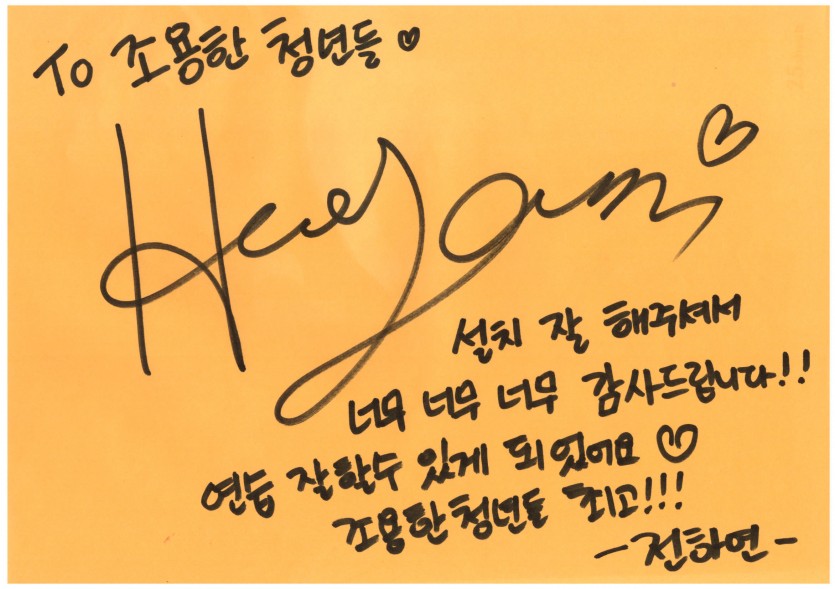 To 조용한 청년들 ♡
설치 잘 해주셔서
너무 너무 너무 감사드립니다!!
연습 잘할수 있게 되었어요 ♡
조용한청년들 최고!!!
- 전하연 -